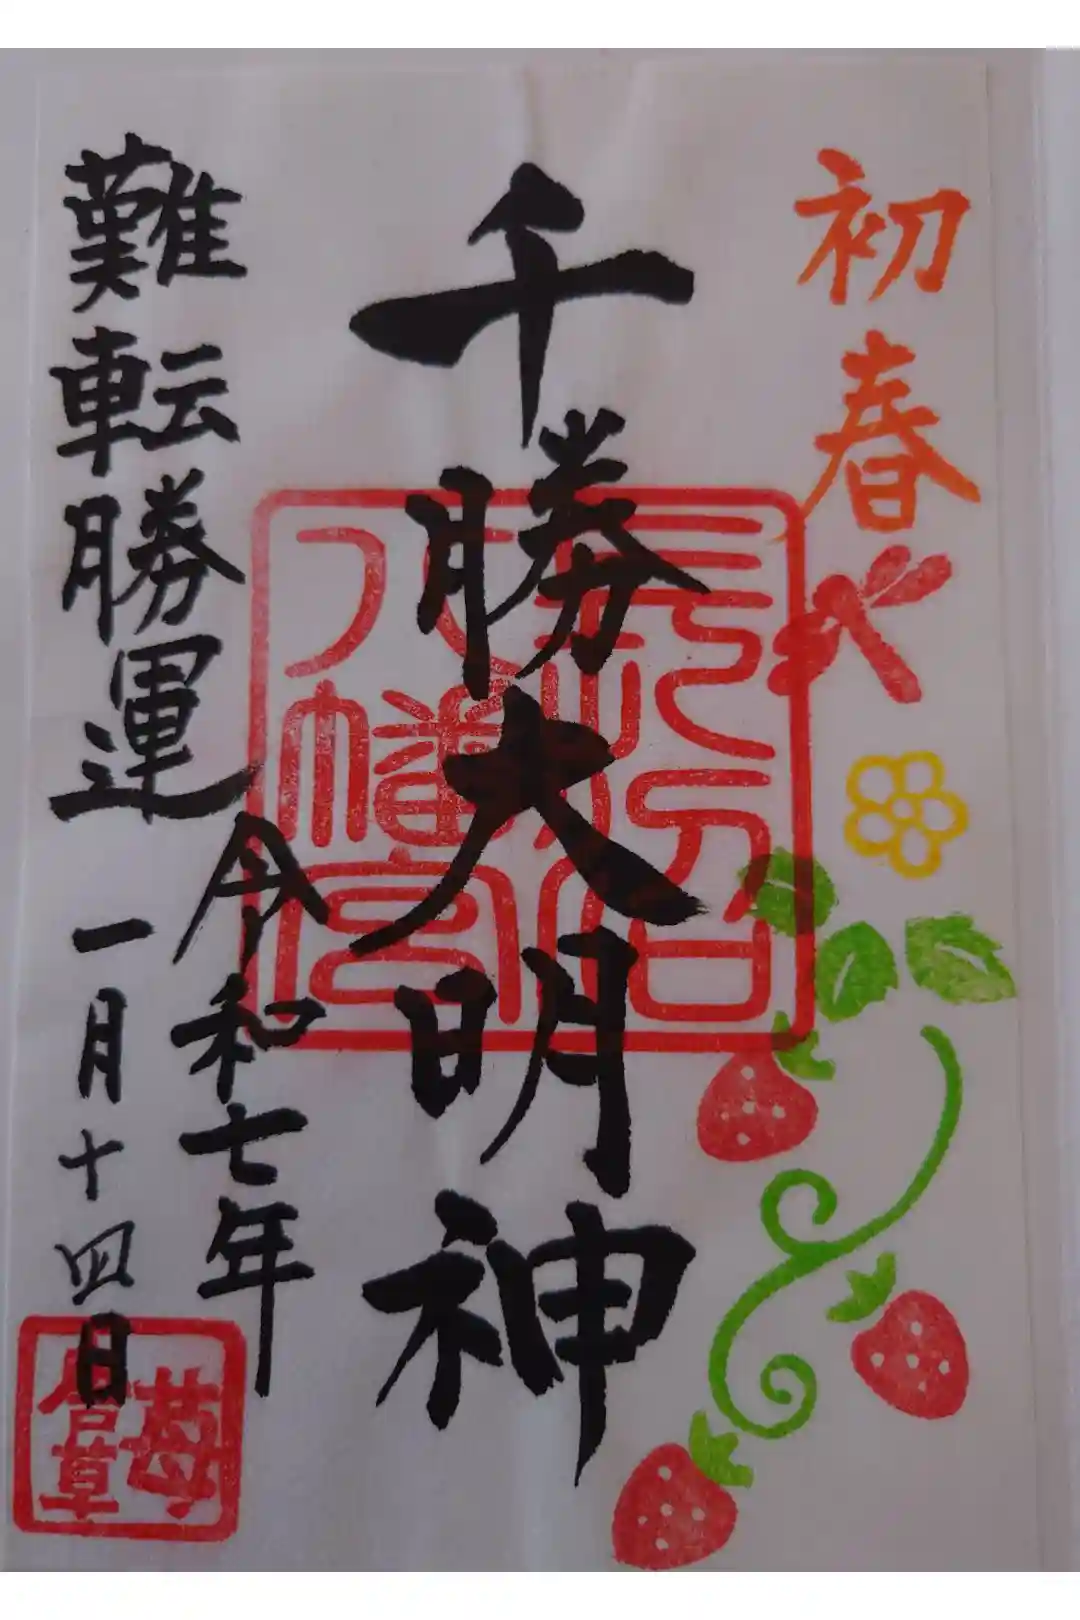 初春
千勝大明神
難転勝運
令和七年
一月十四日
八幡宮
苺